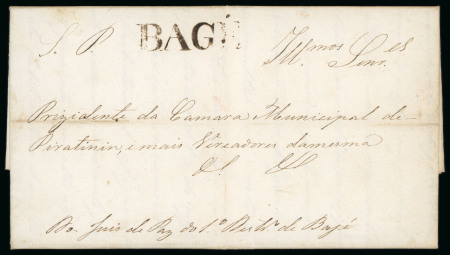 S. P. BAGÉ Ill.mos Senr.es
Prizidente da Camara Municipal de
Piratinin, e mais Vereadores da mesma
&. &.
Do Juis de Paz do 1.º Destr.º de Bajé